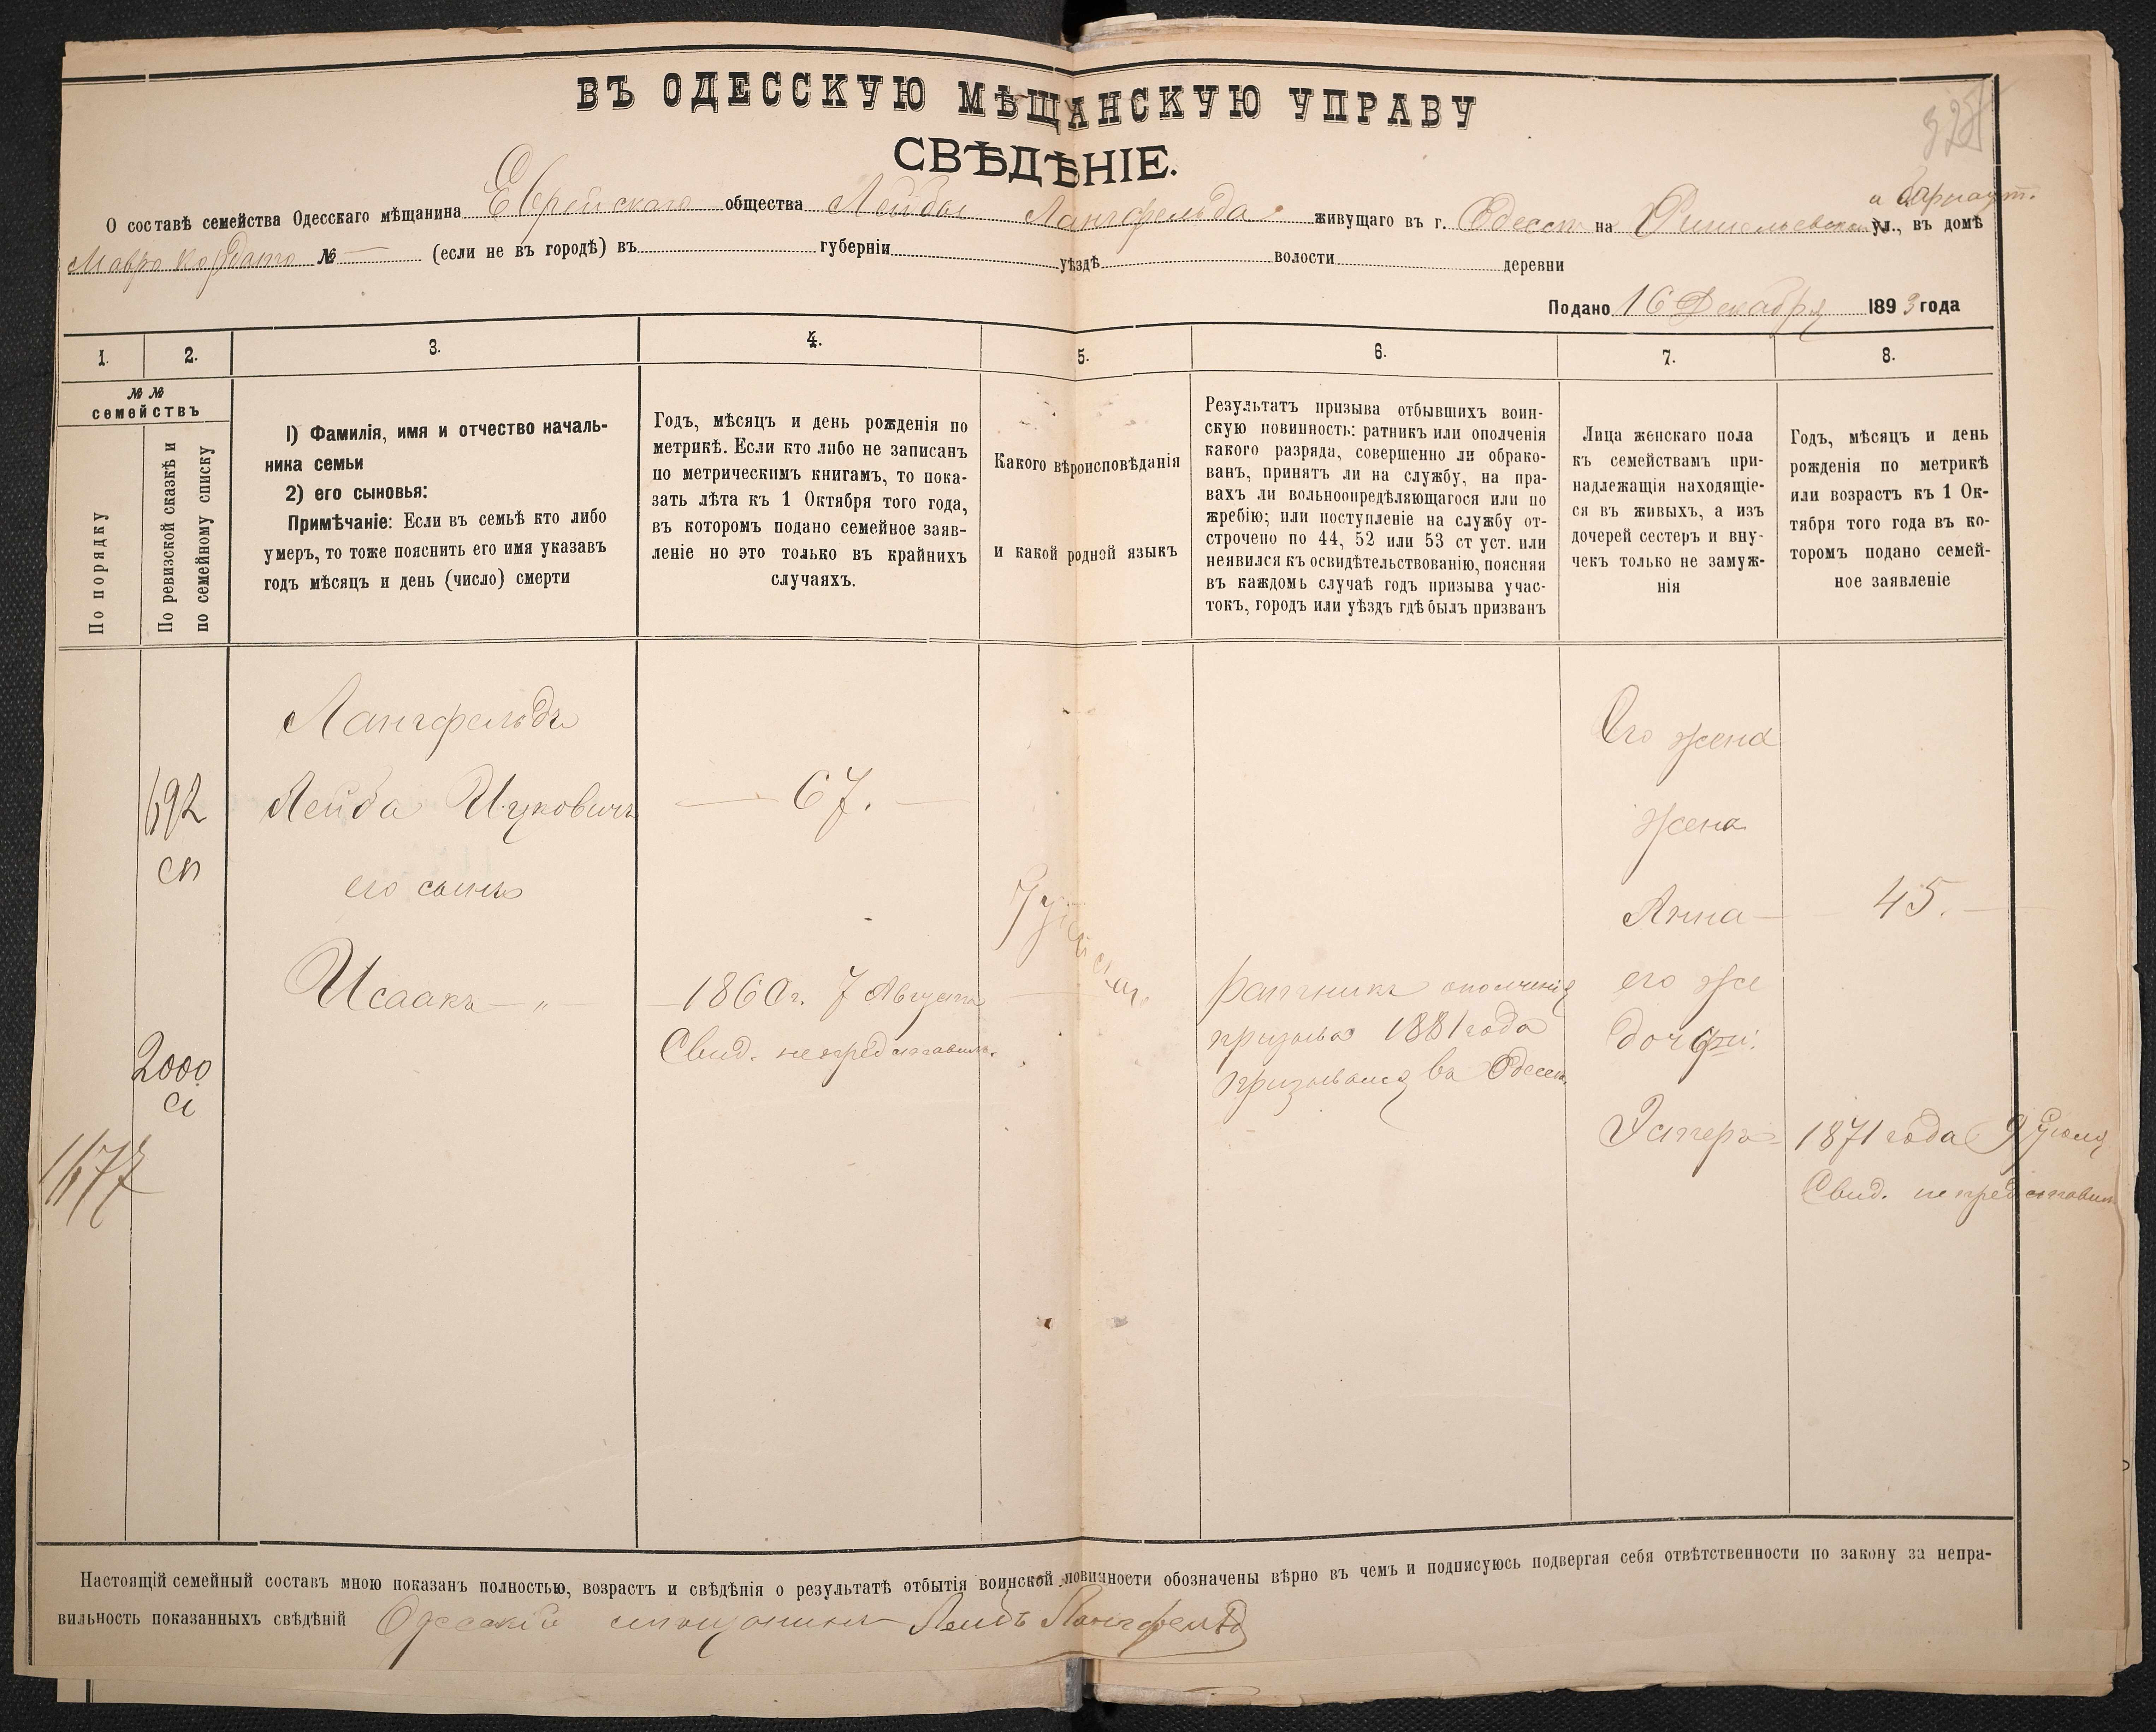 ВЪ ОДЕССКУЮ МѢЩАНСКУЮ УПРАВУ
СВѢДѢНІЕ.
и
О составѣ семейства Одесскаго мѣщанина Еврейскаго общества Лейбы Лангфельда живущаго въ г. Одессѣ на Ришельевской ул., въ домѣ
Маврокордато № — (если не въ городѣ) въ губерніи уѣздѣ волости деревни
Подано 16 Декабря 1893 года
1. 2. 3. 4. 5. 6. 7. 8.
№ №
семействъ
По порядку
По ревизской сказкѣ и
по семейному списку
1) Фамилія, имя и отчество началь-
ника семьи
2) его сыновья:
Примѣчаніе: Если въ семьѣ кто либо
умеръ, то тоже пояснить его имя указавъ
годъ мѣсяцъ и день (число) смерти
Годъ, мѣсяцъ и день рожденія по
метрикѣ. Если кто либо не записанъ
по метрическимъ книгамъ, то пока-
зать лѣта къ 1 Октября того года,
въ котором подано семейное заяв-
леніе но это только въ крайнихъ
случаяхъ.
Какого вѣроисповѣданія
и какой родной языкъ
Результатъ призыва отбывшихъ воин-
скую повинность: ратникъ или ополченія
какого разряда, совершенно ли обрако-
ванъ, принятъ ли на службу, на пра-
вахъ ли вольноопредѣляющагося или по
жребію; или поступленіе на службу от-
строчено по 44, 52 или 53 ст уст. или
неявился къ освидѣтельствованію, поясняя
въ каждомъ случаѣ годъ призыва учас-
токъ, городъ или уѣздъ гдѣ былъ призванъ
Лица женскаго пола
къ семействамъ при-
надлежащія находящіе-
ся въ живыхъ, а изъ
дочерей сестеръ и вну-
чекъ только не замуж-
нія
Годъ, мѣсяцъ и день
рожденія по метрикѣ
или возрастъ къ 1 Ок-
тября того года въ ко-
торомъ подано семей-
ное заявленіе
692
сп
2000
1677
Лангфельдъ
Лейба Ицковичъ
его сынъ
Исаакъ — „ —
— 67. —
— 1860 г. 7 Августа
Свид. не представилъ.
Іудейскаго
ратникъ ополченія
призыва 1881 года
призывался въ Одессѣ
Его жена
жена
Анна —
его же
дочери:
Эстеръ
— 45. —
1871 года 9 Іюля
Свид. не представилъ
Настоящій семейный составъ мною показанъ полностью, возрастъ и свѣдѣнія о результатѣ отбытія воинской повинности обозначены вѣрно въ чемъ и подписуюсь подвергая себя отвѣтственности по закону за непра-
вильность показанныхъ свѣдѣній Одесскій мѣщанинъ Лейбъ Лангфельд